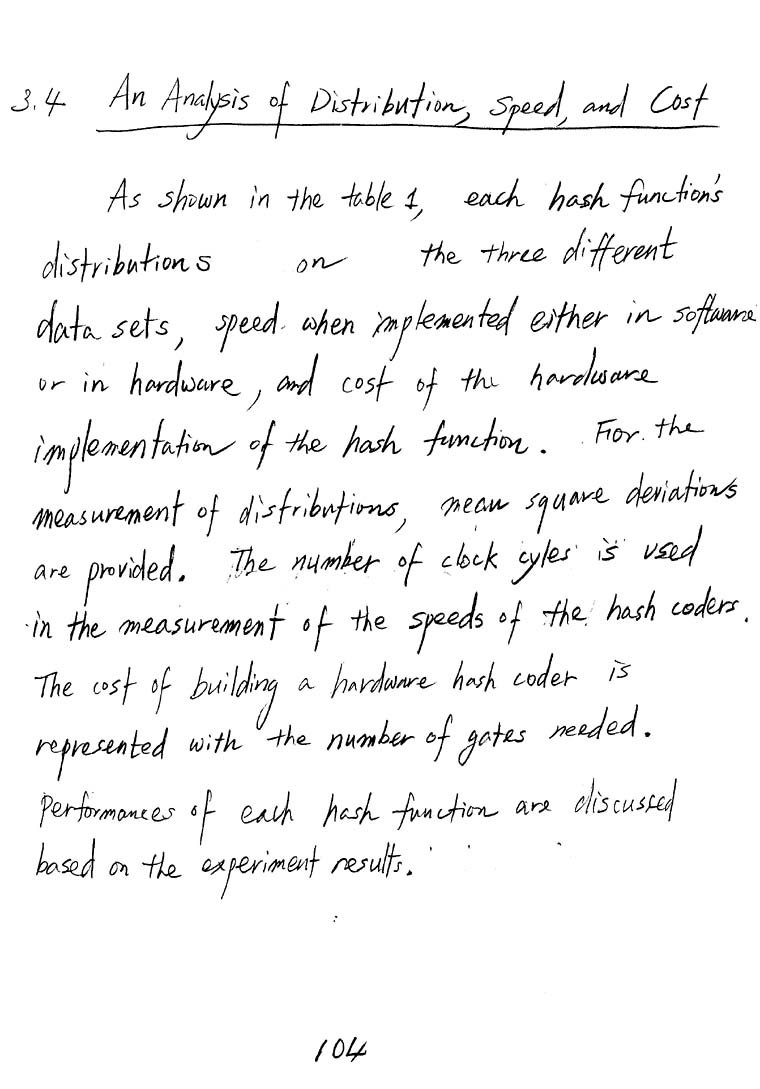 3.4 An Analysis of Distribution, Speed, and Cost
As shown in the table 1, each hash function's
distributions on the three different
data sets, speed when implemented either in software
or in hardware, and cost of the hardware
implementation of the hash function. For the
measurement of distributions, mean square deviations
are provided. The number of clock cyles is used
in the measurement of the speeds of the hash coders.
The cost of building a hardware hash coder is
represented with the number of gates needed.
Performances of each hash function are discussed
based on the experiment results.
104